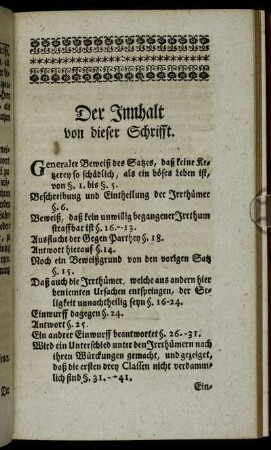 Der Innhalt
von dieser Schrifft.
Generaler Beweiß des Satzes, daß keine Ke-
tzerey so schädlich, als ein böses Leben ist,
von §. 1. bis §. 5.
Beschreibung und Eintheilung der Irrthümer
§. 6.
Beweiß, daß kein unwillig begangener Irrthum
straffbar ist §. 16.--13.
Ausflucht der Gegen Parthey §. 18.
Antwort hierauf §. 14.
Noch ein Beweißgrund von den vorigen Satz
§. 15.
Daß auch die Irrthümer, welche aus andern hier
beniemten Ursachen entspringen, der Se-
ligkeit unnachtheilig seyn §. 16-24.
Einwurff dagegen §. 24.
Antwort §. 25.
Ein andrer Einwurff beantwortet §. 26.-31.
Wird ein Unterschied unter den Irrthümern nach
ihren Würckungen gemacht, und gezeiget,
daß die ersten drey Classen nicht verdamm-
lich sind §. 31.--41.
Ein-